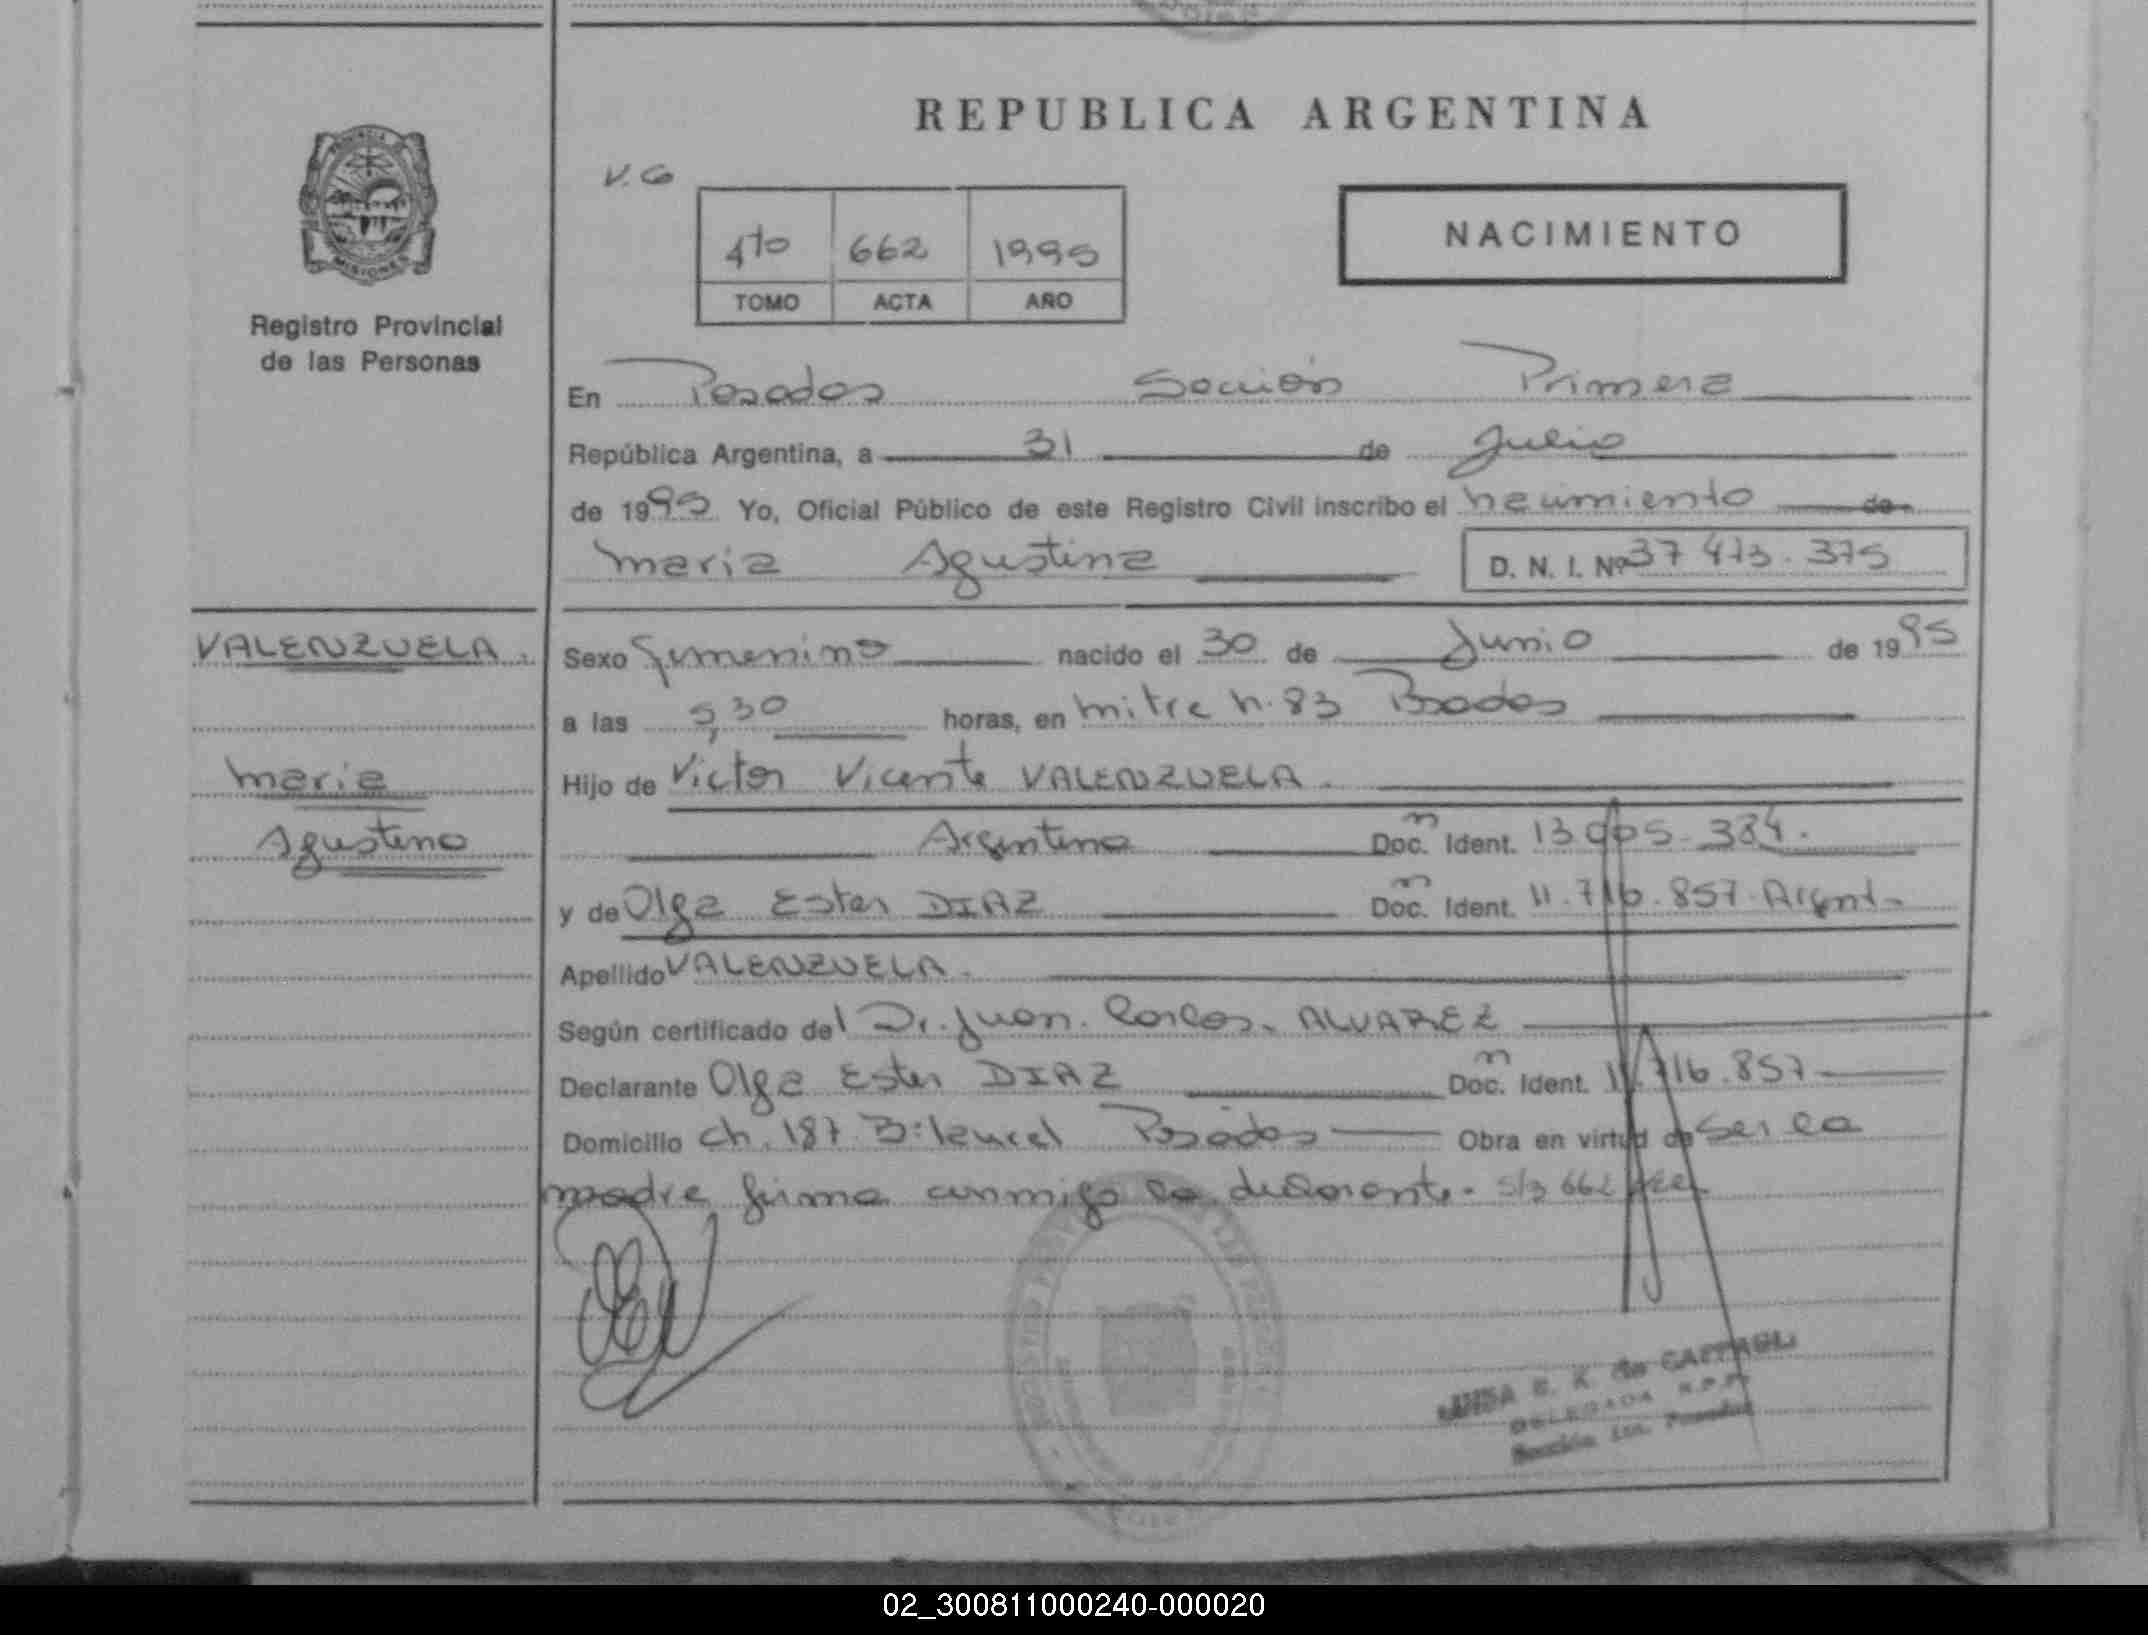 REPUBLICA ARGENTINA
V.G
4to 662 1995
TOMO ACTA AÑO
NACIMIENTO
PROVINCIA DE
MISIONES
Registro Provincial
de las Personas
En Posadas Sección Primera
República Argentina, a 31 de Julio
de 1995 Yo, Oficial Público de este Registro Civil inscribo el nacimiento de
Maria Agustina D. N. I. Nº 37 473.375
VALENZUELA.
Maria
Agustina
Sexo femenino nacido el 30 de Junio de 1995
a las 5,30 horas, en Mitre n.83 Posadas
Hijo de Victor Vicente VALENZUELA.
Argentino Doc. Ident. 13.005.384.
y de Olga Ester DIAZ Doc. Ident. 11.716.857. Argent.
Apellido VALENZUELA.
Según certificado del Dr. Juan Carlos ALVAREZ
Declarante Olga Ester DIAZ Doc. Ident. 11.716.857
Domicilio Ch. 187 Posadas Obra en virtud de ser la
madre firma conmigo la declarante. 662
de
DELEGADA R.P.P.
Sección 1ra. Posadas
02_300811000240-000020